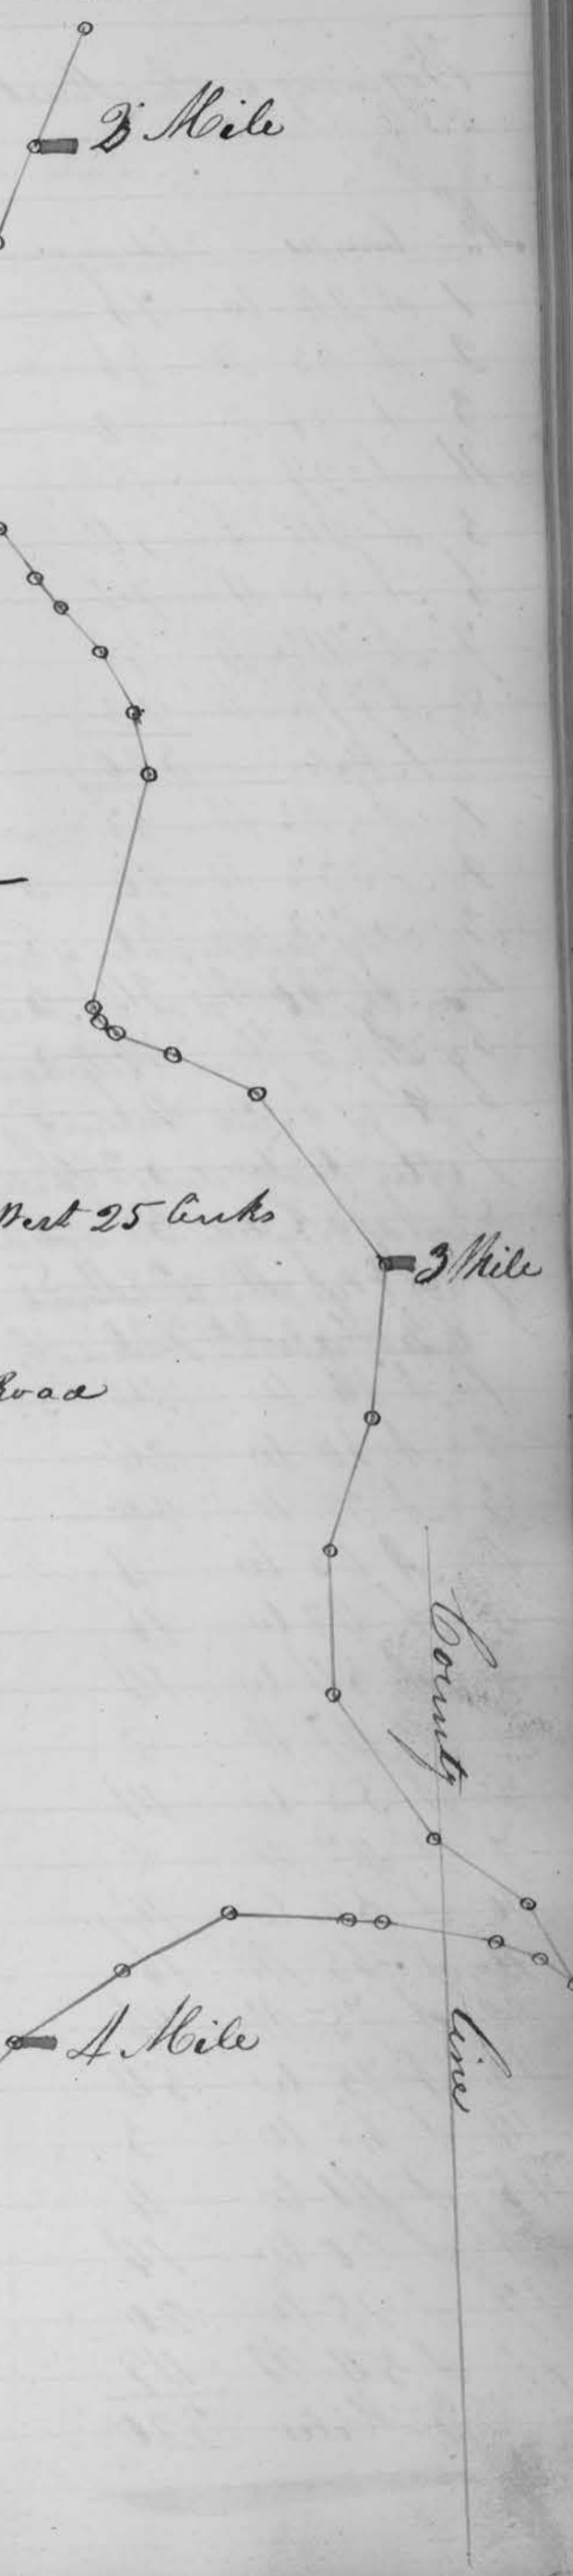 Mile
West 25 links
3 Mile
Road
County
line
4 Mile